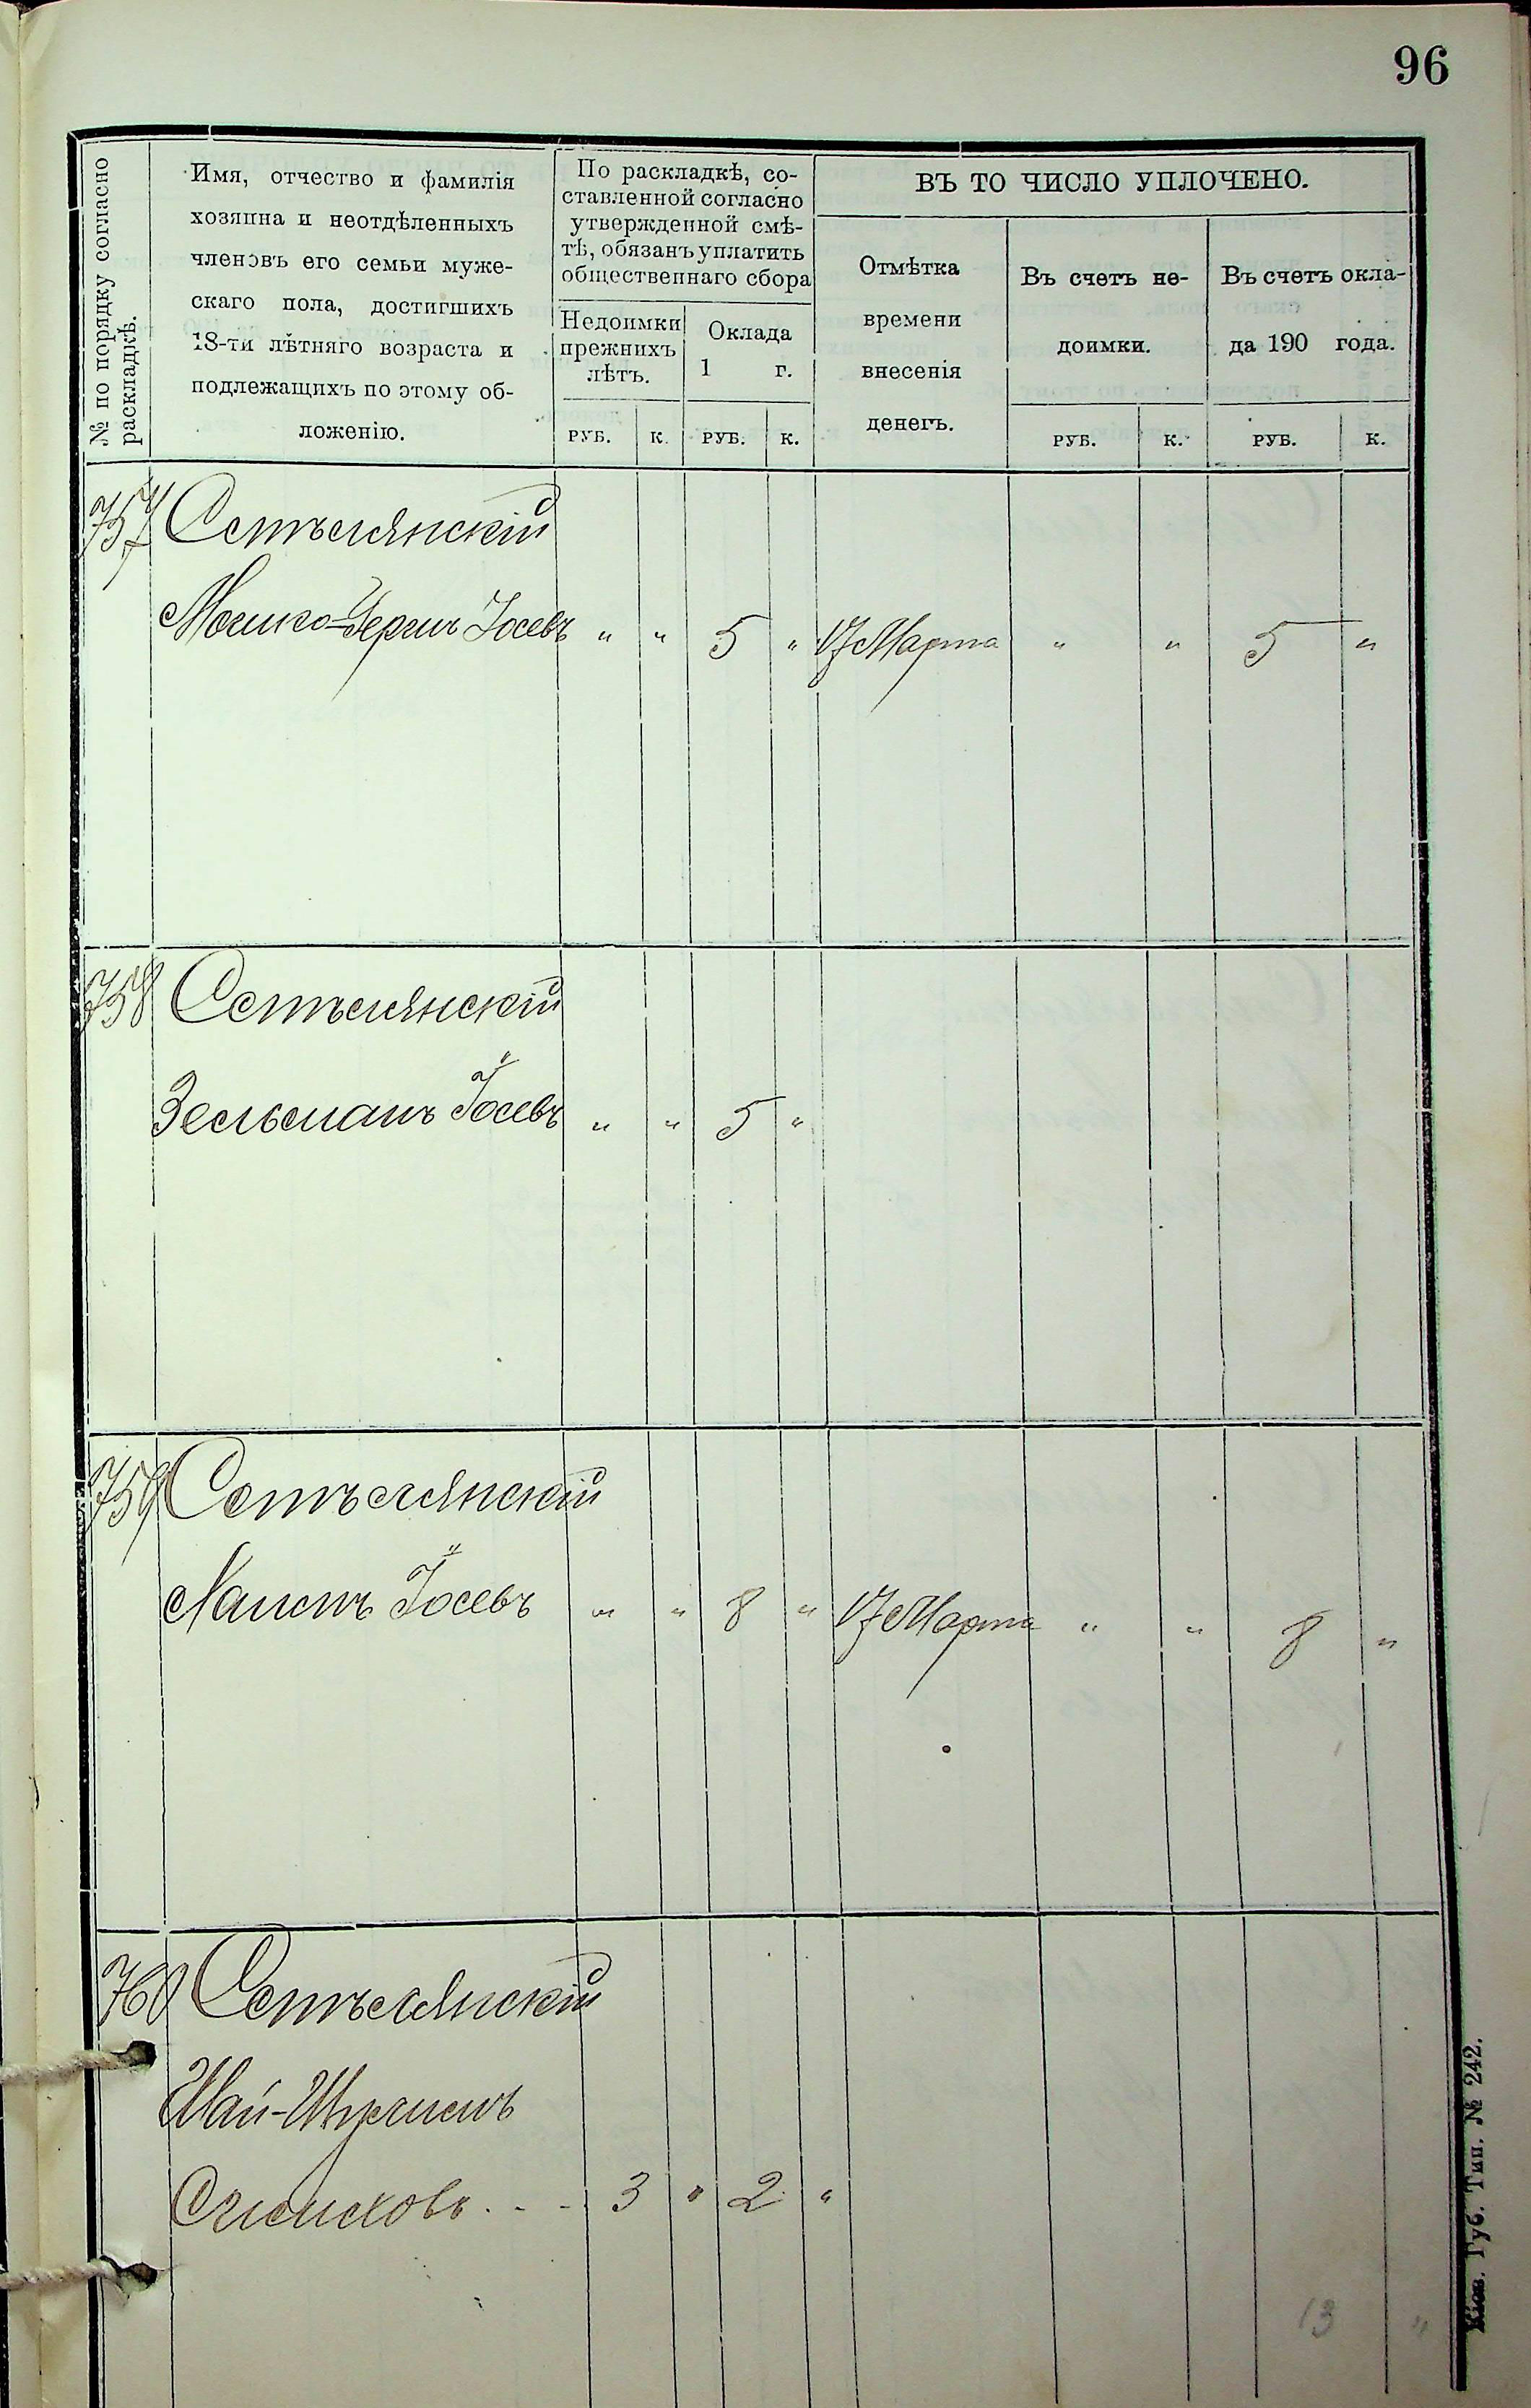 96
№ по порядку согласно
раскладкѣ.
Имя, отчество и фамилія
хозяина и неотдѣленныхъ
членовъ его семьи муже-
скаго пола, достигшихъ
18-ти лѣтняго возраста и
подлежащихъ по этому об-
ложенію.
По раскладкѣ, со-
ставленной согласно
утвержденной смѣ-
тѣ, обязанъ уплатить
общественнаго сбора
Недоимки
прежнихъ
лѣтъ.
Оклада
1 г.
РУБ. К. РУБ. К.
ВЪ ТО ЧИСЛО УПЛОЧЕНО.
Отмѣтка
времени
внесенія
денегъ.
Въ счетъ не-
доимки.
Въ счетъ окла-
да 190 года.
РУБ. К. РУБ. К.
757 Сетъелянскій
Мошко- Іосевъ " " 5 " 17 Марта " " 5 "
758 Сетъелянскій
Зельманъ Іосевъ " " 5 "
759 Сетъелянскій
Хаимъ Іосевъ " " 8 " 17 Марта " " 8 "
760 Сетъелянскій
Шай-
3 " 2 "
13 "
Кіев. Губ. Тип. № 242.